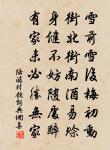 雪前雪後梅初動
街北街南酒易賒
身健不妨隨
有家未必勝無家
陸游村飲詞典網集